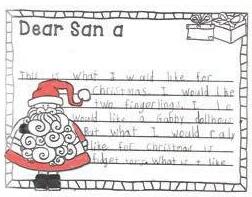 Dear San a
This What I wald like for
Christmas. I would like
two fingerlings, I
would like a Gabby dollhous
But what I would
like for Christmas is
fidget What is + like